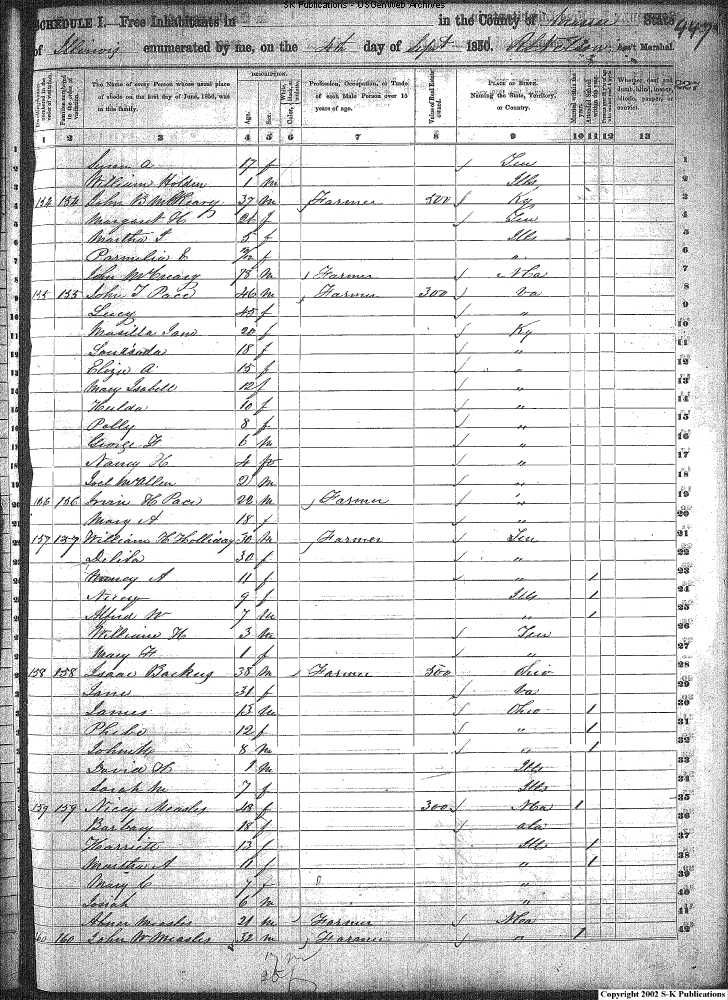 SK Publications - USGenWeb Archives
SCHEDULE I.—Free Inhabitants in in the County of State
of Illinois enumerated by me, on the 4th day of Sept 1850. Ass't Marshal
447
227
DESCRIPTION.
The Name of every Person whose usual place of abode on the first day of June, 1850, was in this family.
Age.
Sex.
Profession, Occupation, or Trade of each Male Person over 15 years of age.
Value of Real Estate owned.
PLACE OF BIRTH. Naming the State, Territory, or Country.
Whether deaf and dumb, blind, insane, idiotic, pauper, or convict.
1 2 3 4 5 6 7 8 9 10 11 12 13
Susan A. 17 f Ten
William Holden 1 m Ills
154 154 John B McCreary 37 m Farmer 500 Ky
Margaret H 26 f Ten
Martha J 5 f Ills
Parmelia E f "
John McCreary 75 m Farmer
155 155 John T Pace 46 m Farmer 300 Va
Lucy 45 f "
Masilla Jane 20 f Ky
18 f "
Eliza A 15 f "
Mary Isabell 12 f "
Hulda 10 f "
Polly 8 f "
George W 6 m "
Nancy H 4 f "
Joel McAllen 2 m "
156 156 Irvin H Pace 22 m Farmer "
Mary A 18 f "
157 157 William H Holliday 30 m Farmer Ten
Delila 30 f "
Nancy A 11 f " 1
Nicey 9 f Ills 1
Alfred W 7 m " 1
William H 3 m Ten
Mary F 1 f "
158 158 Isaac Backus 38 m Farmer 500 Ohio
Jane 31 f Va
James 13 m Ohio 1
Phebe 12 f " 1
John M 8 m " 1
David H 1 m Ills
Sarah M 7 f Ills
159 159 Nicey Measles 43 f 300 1
Barbary 18 f Ala
Harriett 13 f Ill 1
Martha A 11 f " 1
Mary C 7 f "
Josiah 6 m "
Abner Measles 21 m Farmer
160 160 John W Measles 32 m Farmer " 1
17 m
Copyright 2002 S-K Publications